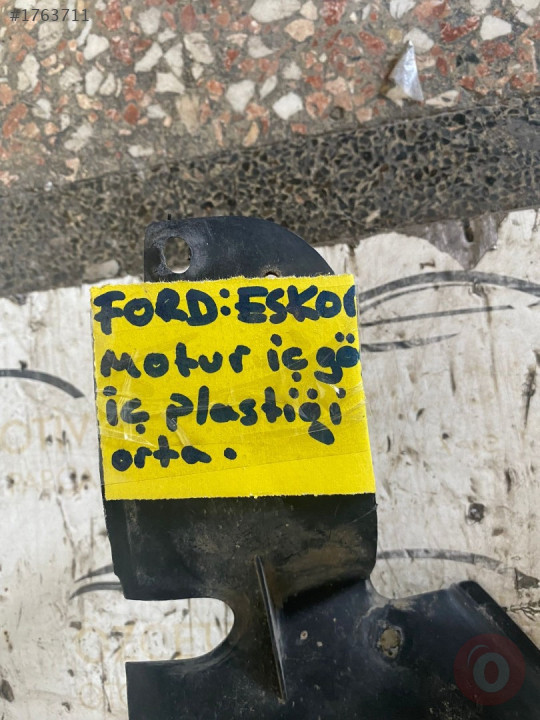 #1763711
FORD:ESKO
Motur iç gö
iç Plastiği
orta.